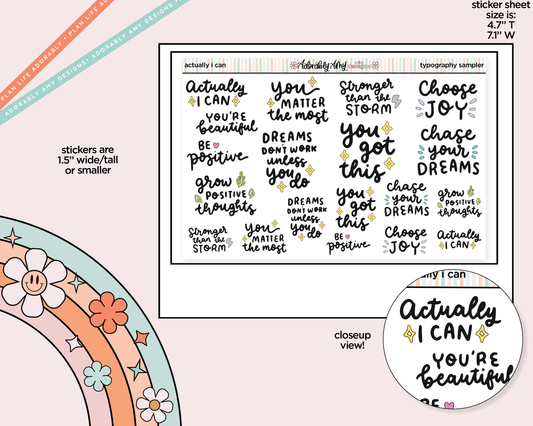 PLAN LIFE ADORABLY • PLAN LIFE ADORABLY •
ADORABLY AMY DESIGNS • ADORABLY AMY DESIGNS
sticker sheet
size is:
4.7" T
7.1" W
stickers are
1.5" wide/tall
or smaller
actually i can
Adorably Amy
designs
typography sampler
Actually
I CAN
YOU'RE
beautiful
BE
positive
grow
POSITIVE
thoughts
Stronger
than the
STORM
you
MATTER
the most
DREAMS
DON'T WORK
unless
you
do
you
MATTER
the most
Stronger
than the
STORM
you
got
this
DREAMS
DON'T WORK
unless
you do
you
got
this
BE
positive
Choose
JOY
chase
your
DREAMS
chase
your
DREAMS
grow
POSITIVE
thoughts
Choose
JOY
Actually
I CAN
closeup
view!
actually i can
Actually
I CAN
YOU'RE
beautiful
BE